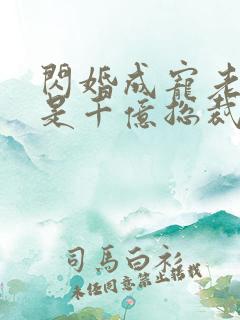 閃婚成寵老
是千億總裁
司馬白衫
未經同意禁止搭載